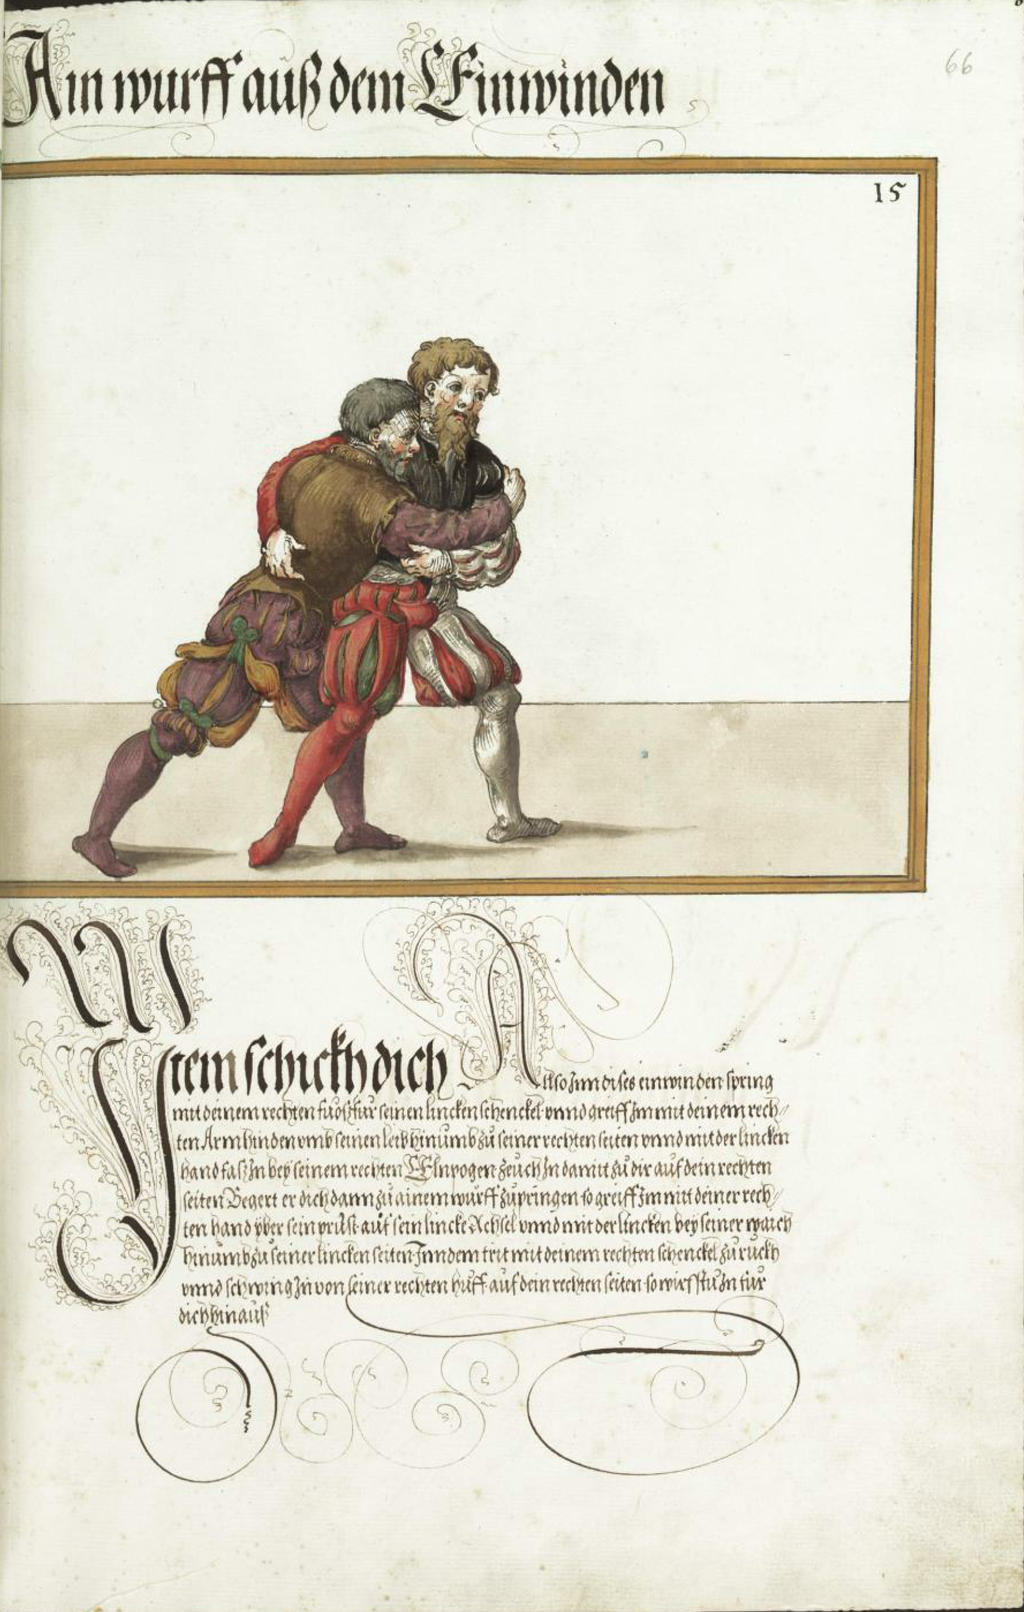 Ain wurff auß dem Einwinden
66
15
Item schickh dich Allso Inn dises einwinden spring
mit deinem rechten fuoß für seinen lincken schenckel vnnd greiff Im mit deinem rech„
ten Arm hinden vmb seinen leib hinumb zu seiner rechten seiten vnnd mit der lincken
hand faß In bey seinem rechten Elnpogen zeuch In damit zu dir auf dein rechten
seiten Begert er dich dann zu ainem wurff zupringen so greiff Im mit deiner rech„
ten hand yber sein prust auf sein lincke Achsel vnnd mit der lincken bey seiner waich
hinumb zu seiner lincken seiten Inndem trit mit deinem rechten schenckel zu ruckh
vnnd schwing In von seiner rechten huff auf dein rechten seiten so wirfstu In für
dich hinauß